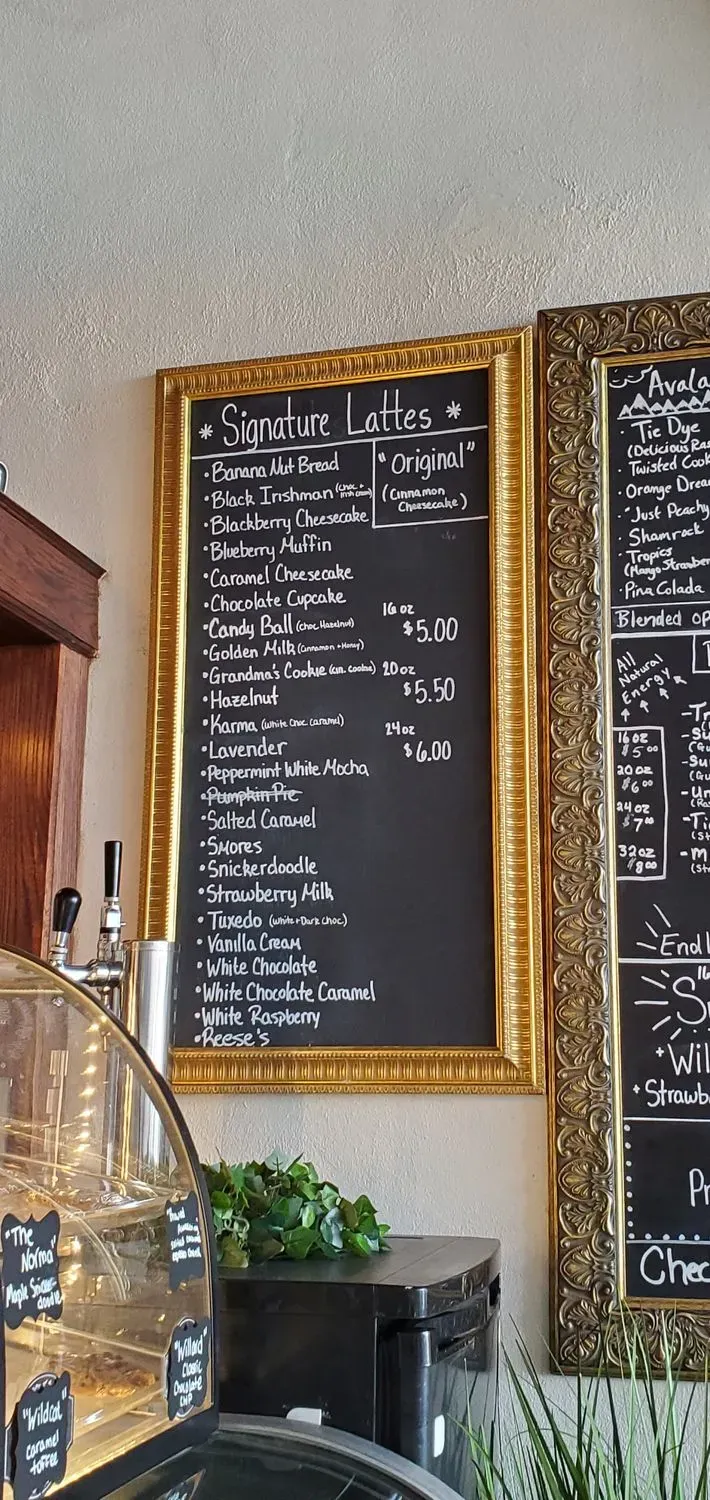 * Signature Lattes *
"Original"
(Cinnamon
Cheesecake)
• Banana Nut Bread
• Black Irishman (choc + Irish cream)
• Blackberry Cheesecake
• Blueberry Muffin
• Caramel Cheesecake
• Chocolate Cupcake
• Candy Ball (choc. Hazelnut)
• Golden Milk (Cinnamon + Honey)
• Grandma's Cookie (cin. cookie)
• Hazelnut
• Karma (White Choc. Caramel)
• Lavender
• Peppermint White Mocha
• Pumpkin Pie
• Salted Caramel
• Smores
• Snickerdoodle
• Strawberry Milk
• Tuxedo (White + Dark Choc.)
• Vanilla Cream
• White Chocolate
• White Chocolate Caramel
• White Raspberry
• Reese's
16 oz
$5.00
20 oz
$5.50
24 oz
$6.00
Avala
• Tie Dye
(Delicious Ras
• Twisted Cook
• Orange Drea
• "Just Peachy
• Shamrock
• Tropics
(Mango Strawber
• Pina Colada
Blended op
All
Natural
Energy
16 oz
$5.00
20 oz
$6.00
24 oz
$7.00
32 oz
$8.00
Endl
+ Wil
+ Strawb
Pr
Chec
"The
Norma"
Maple Snicker-
doodle
"Willard"
Classic
Chocolate
Chip
"Wildcat"
caramel
toffee